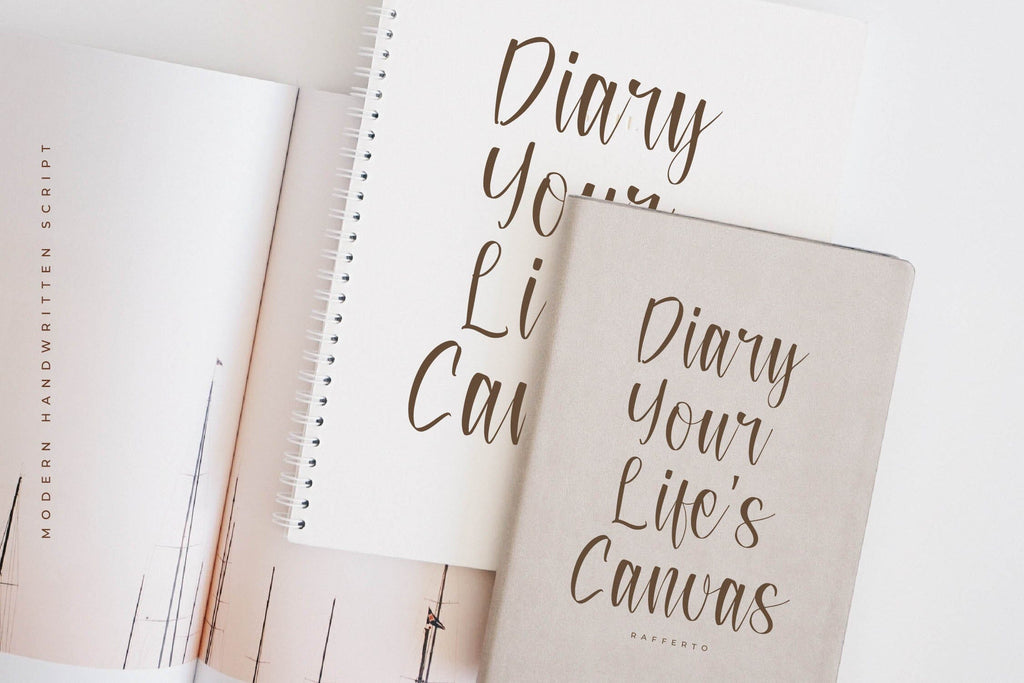 MODERN HANDWRITTEN SCRIPT
Diary
Your
Li
Can
Diary
Your
Life's
Canvas
RAFFERTO